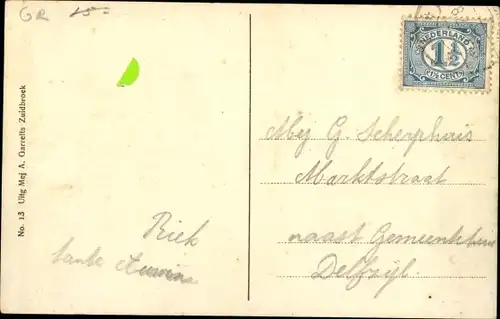 GR 15-
NEDERLAND
1½
1½ CENT
No. 13 Uitg Mej A. Garrelts Zuidbroek
Mej G. Scherphuis
Marktstraat
naast Gemeentehuis
Delfzijl.
Riek
tante